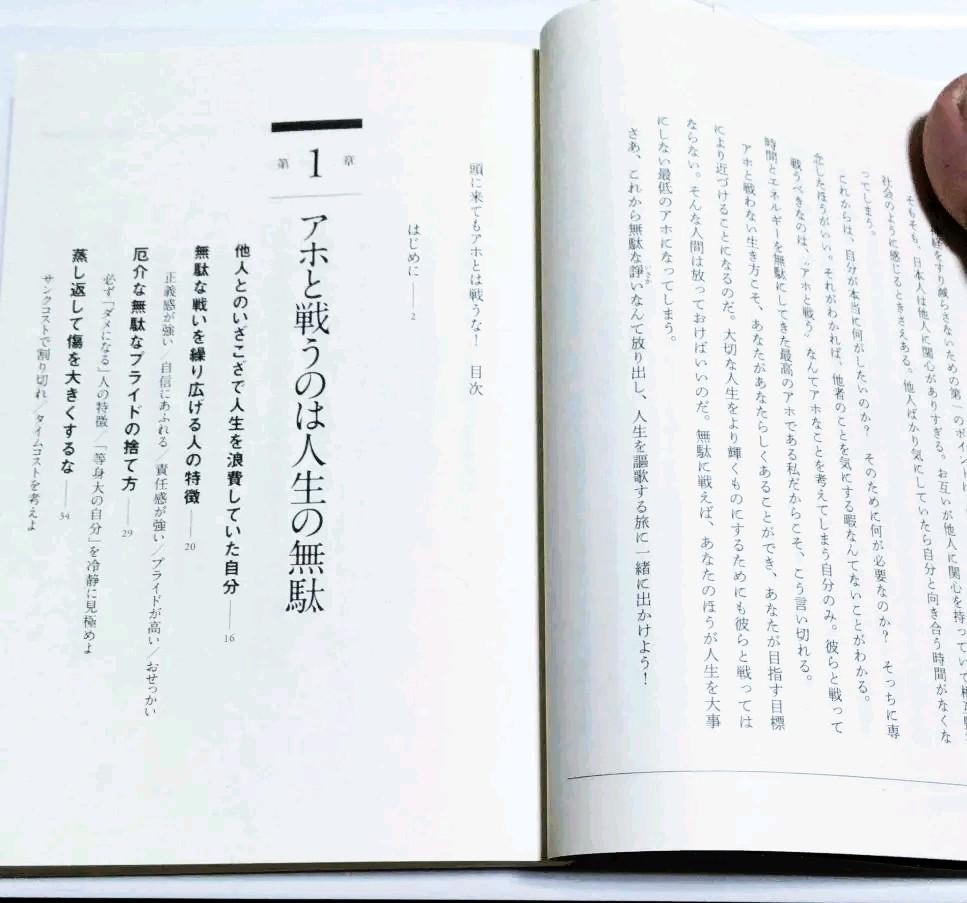 神経をすり減らさないための第一のポイント
そもそも、日本人は他人に関心がありすぎる。お互いが他人に関心を持っていて相互監視
社会のように感じるときさえある。他人ばかり気にしていたら自分と向き合う時間がなくな
ってしまう。
これからは、自分が本当に何がしたいのか? そのために何が必要なのか? そっちに専
念したほうがいい。それがわかれば、他者のことを気にする暇なんてないことがわかる。
戦うべきなのは、〝アホと戦う〟なんてアホなことを考えてしまう自分のみ。彼らと戦って
時間とエネルギーを無駄にしてきた最高のアホである私だからこそ、こう言い切れる。
アホと戦わない生き方こそ、あなたがあなたらしくあることができ、あなたが目指す目標
により近づけることになるのだ。大切な人生をより輝くものにするためにも彼らと戦っては
ならない。そんな人間は放っておけばいいのだ。無駄に戦えば、あなたのほうが人生を大事
にしない最低のアホになってしまう。
さあ、これから無駄な諍いなんて放り出し、人生を謳歌する旅に一緒に出かけよう!
いさか
頭に来てもアホとは戦うな! 目次
はじめに――2
第1章
アホと戦うのは人生の無駄
他人とのいざこざで人生を浪費していた自分――16
無駄な戦いを繰り広げる人の特徴――20
正義感が強い/自信にあふれる/責任感が強い/プライドが高い/おせっかい
厄介な無駄なプライドの捨て方――29
必ず「ダメになる」人の特徴/「等身大の自分」を冷静に見極めよ
蒸し返して傷を大きくするな――34
サンクコストで割り切れ/タイムコストを考えよ